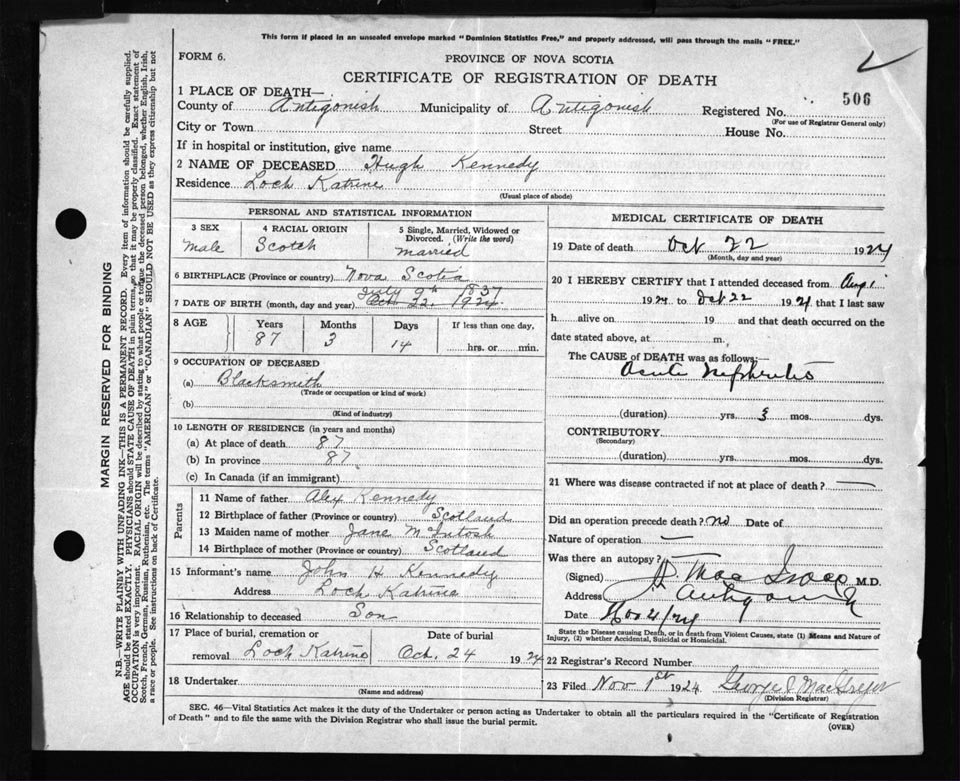 This form if placed in an unsealed envelope marked "Dominion Statistics Free," and properly addressed, will pass through the mails "FREE."
FORM 6.
PROVINCE OF NOVA SCOTIA
CERTIFICATE OF REGISTRATION OF DEATH
1 PLACE OF DEATH—
County of Antigonish Municipality of Antigonish Registered No. 506
(For use of Registrar General only)
City or Town Street House No.
If in hospital or institution, give name
2 NAME OF DECEASED Hugh Kennedy
Residence Loch Katrine
(Usual place of abode)
PERSONAL AND STATISTICAL INFORMATION
3 SEX 4 RACIAL ORIGIN 5 Single, Married, Widowed or
Divorced. (Write the word)
Male Scotch married
6 BIRTHPLACE (Province or country) Nova Scotia
July 9th 1837
7 DATE OF BIRTH (month, day and year) Oct. 22. 1924.
8 AGE Years Months Days If less than one day,
87 3 14 hrs. or min.
9 OCCUPATION OF DECEASED
(a) Blacksmith
(Trade or occupation or kind of work)
(b)
(Kind of industry)
10 LENGTH OF RESIDENCE (in years and months)
(a) At place of death 87
(b) In province 87
(c) In Canada (if an immigrant)
Parents
11 Name of father Alex Kennedy
12 Birthplace of father (Province or country) Scotland
13 Maiden name of mother Jane McIntosh
14 Birthplace of mother (Province or country) Scotland
15 Informant's name John H Kennedy
Address Loch Katrine
16 Relationship to deceased Son
17 Place of burial, cremation or Date of burial
removal Loch Katrine Oct. 24 1924
18 Undertaker
(Name and address)
MEDICAL CERTIFICATE OF DEATH
19 Date of death Oct 22 1924
(Month, day and year)
20 I HEREBY CERTIFY that I attended deceased from Aug 1
1924 to Oct 22 1924 that I last saw
h alive on 19 and that death occurred on the
date stated above, at m.
The CAUSE of DEATH was as follows:—
Acute Nephritis
(duration) yrs. 3 mos. dys.
CONTRIBUTORY
(Secondary)
(duration) yrs. mos. dys.
21 Where was disease contracted if not at place of death? —
Did an operation precede death? no Date of
Nature of operation —
Was there an autopsy? —
(Signed) MacIsaac M.D.
Address Antigonish
Date Nov 4/24
State the Disease causing Death, or in death from Violent Causes, state (1) Means and Nature of
Injury, (2) whether Accidental, Suicidal or Homicidal.
22 Registrar's Record Number
23 Filed Nov 1st 1924 George MacGregor
(Division Registrar)
SEC. 46—Vital Statistics Act makes it the duty of the Undertaker or person acting as Undertaker to obtain all the particulars required in the "Certificate of Registration
of Death" and to file the same with the Division Registrar who shall issue the burial permit.
(OVER)
MARGIN RESERVED FOR BINDING
N.B.—WRITE PLAINLY WITH UNFADING INK—THIS IS A PERMANENT RECORD. Every item of information should be carefully supplied.
AGE should be stated EXACTLY. PHYSICIANS should STATE CAUSE OF DEATH in plain terms, so that it may be properly classified. Exact statement of
OCCUPATION is very important. RACIAL ORIGIN will be described by stating to what people or tongue the deceased person belonged, whether English, Irish,
Scotch, French, German, Russian, Ruthenian, etc. The terms "AMERICAN" or "CANADIAN" SHOULD NOT BE USED as they express citizenship but not
a race or people. See instructions on back of Certificate.